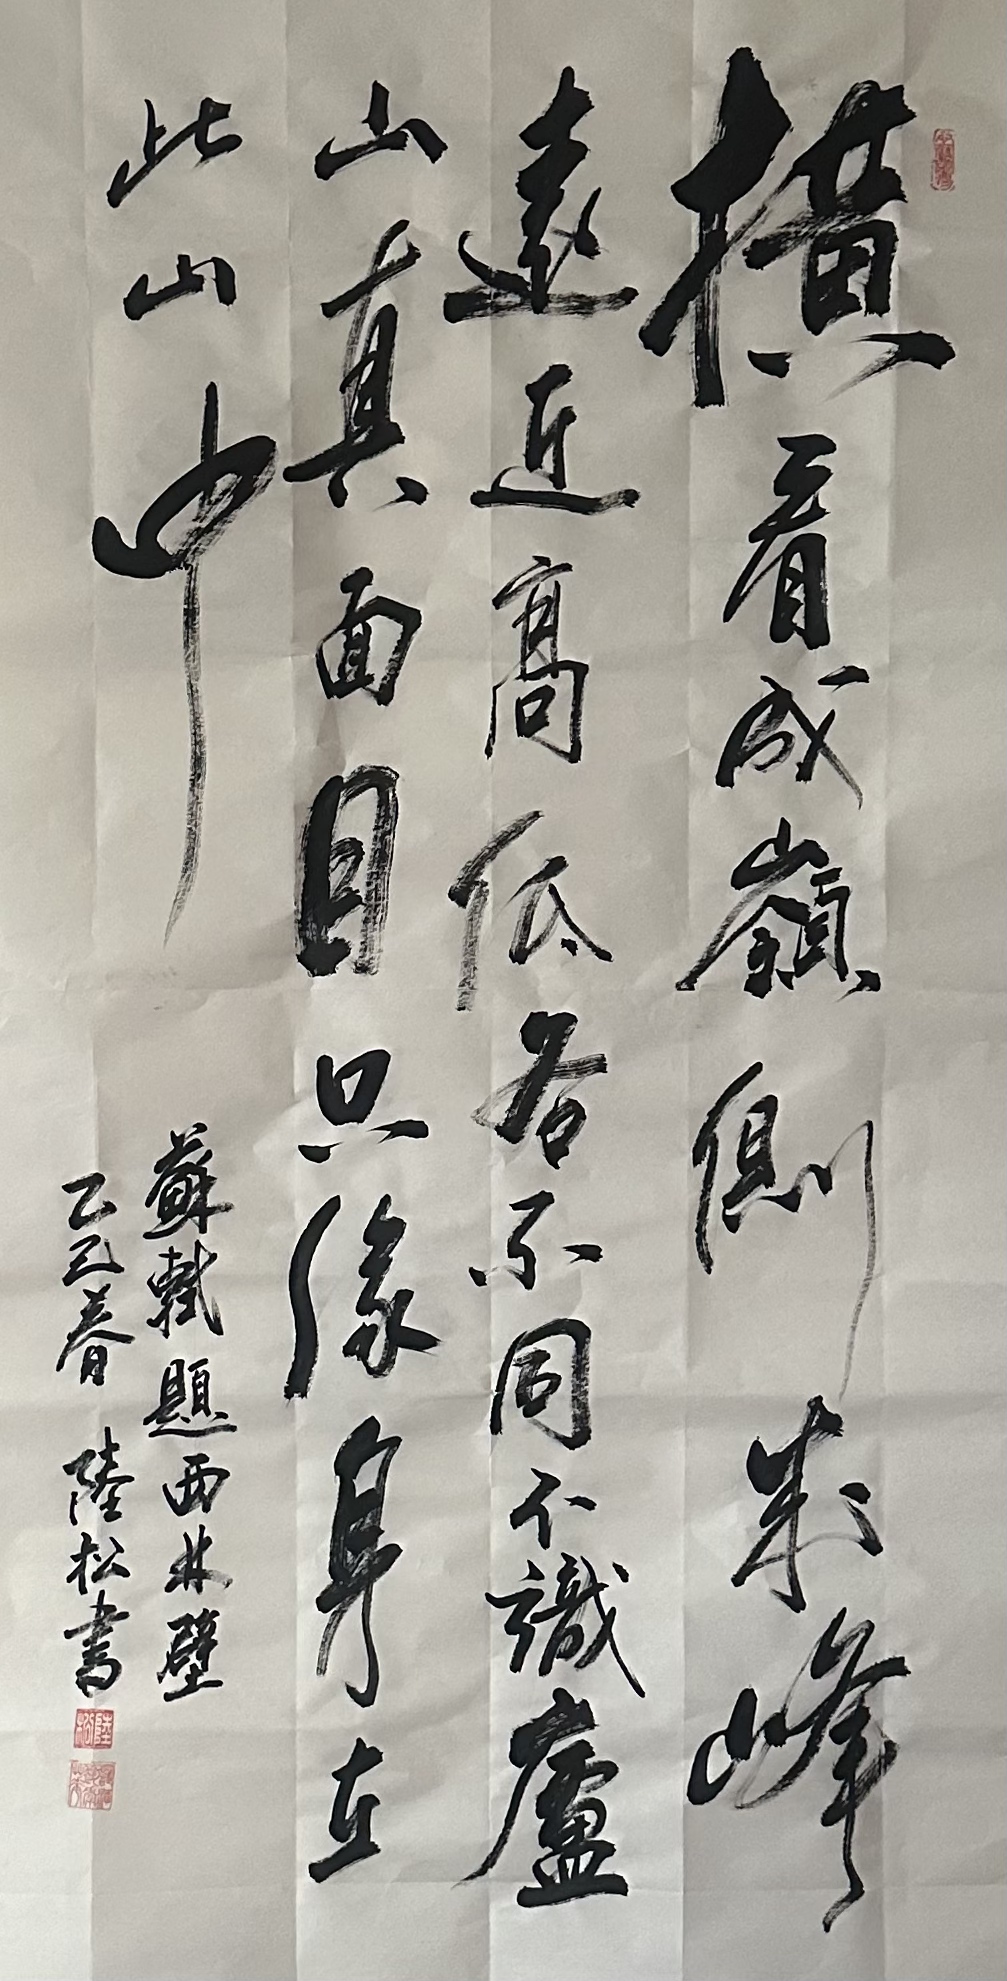 橫看成嶺側成峰
遠近高低各不同不識廬
山真面目只緣身在
此山中
蘇軾題西林壁
乙巳春 陸松書
陸松